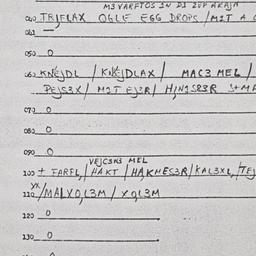 M3VARFTOS IN DI ZUP AKAJA
040 TRIFLAX OGLE EGG DROPS / MIT A
041 —
050 0
060 KNÉJDL / KNEJDLAX / MAC3 MEL /
PEJS3X / MIT EJ3R / H,N1S3R S+MA
070 0
080 0
090 0
VEJC3N3 MEL
100 + FARFL, / HAKT / HAKMES3R / KAL3XL, / TEJ
110 YX / MALXO,L3M / XO,L3M
120 0
130 0